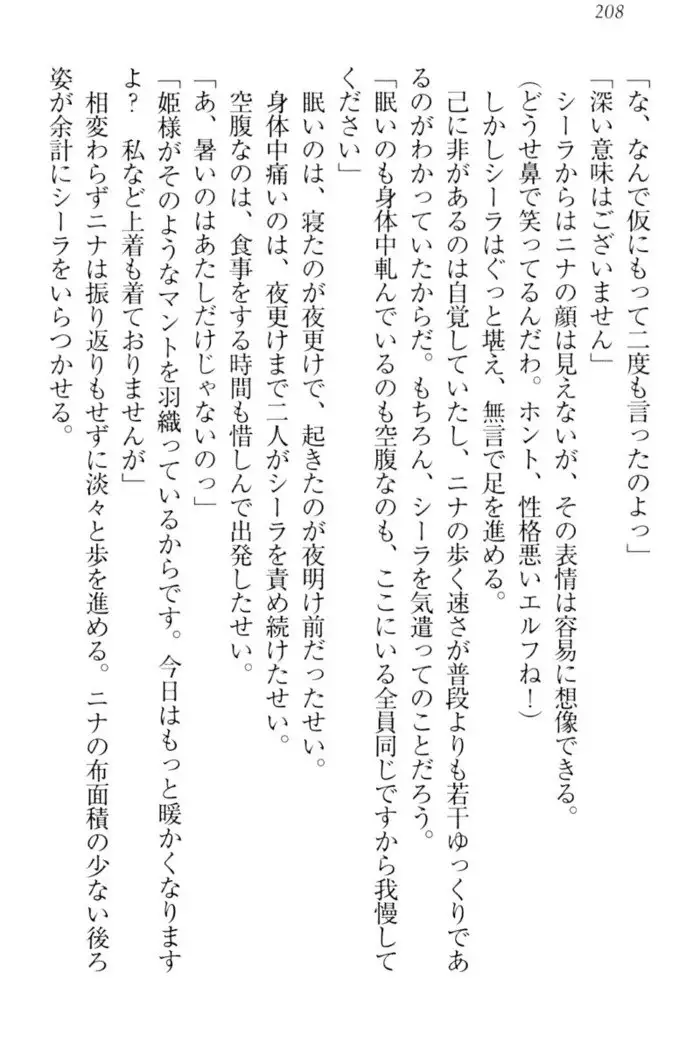 208
「な、なんで仮にもって二度も言ったのよっ」
「深い意味はございません」
シーラからはニナの顔は見えないが、その表情は容易に想像できる。
(どうせ鼻で笑ってるんだわ。ホント、性格悪いエルフね!)
しかしシーラはぐっと堪え、無言で足を進める。
己に非があるのは自覚していたし、ニナの歩く速さが普段よりも若干ゆっくりであ
るのがわかっていたからだ。もちろん、シーラを気遣ってのことだろう。
「眠いのも身体中軋んでいるのも空腹なのも、ここにいる全員同じですから我慢して
ください」
眠いのは、寝たのが夜更けで、起きたのが夜明け前だったせい。
身体中痛いのは、夜更けまで二人がシーラを責め続けたせい。
空腹なのは、食事をする時間も惜しんで出発したせい。
「あ、暑いのはあたしだけじゃないのっ」
「姫様がそのようなマントを羽織っているからです。今日はもっと暖かくなります
よ? 私など上着も着ておりませんが」
相変わらずニナは振り返りもせずに淡々と歩を進める。ニナの布面積の少ない後ろ
姿が余計にシーラをいらつかせる。